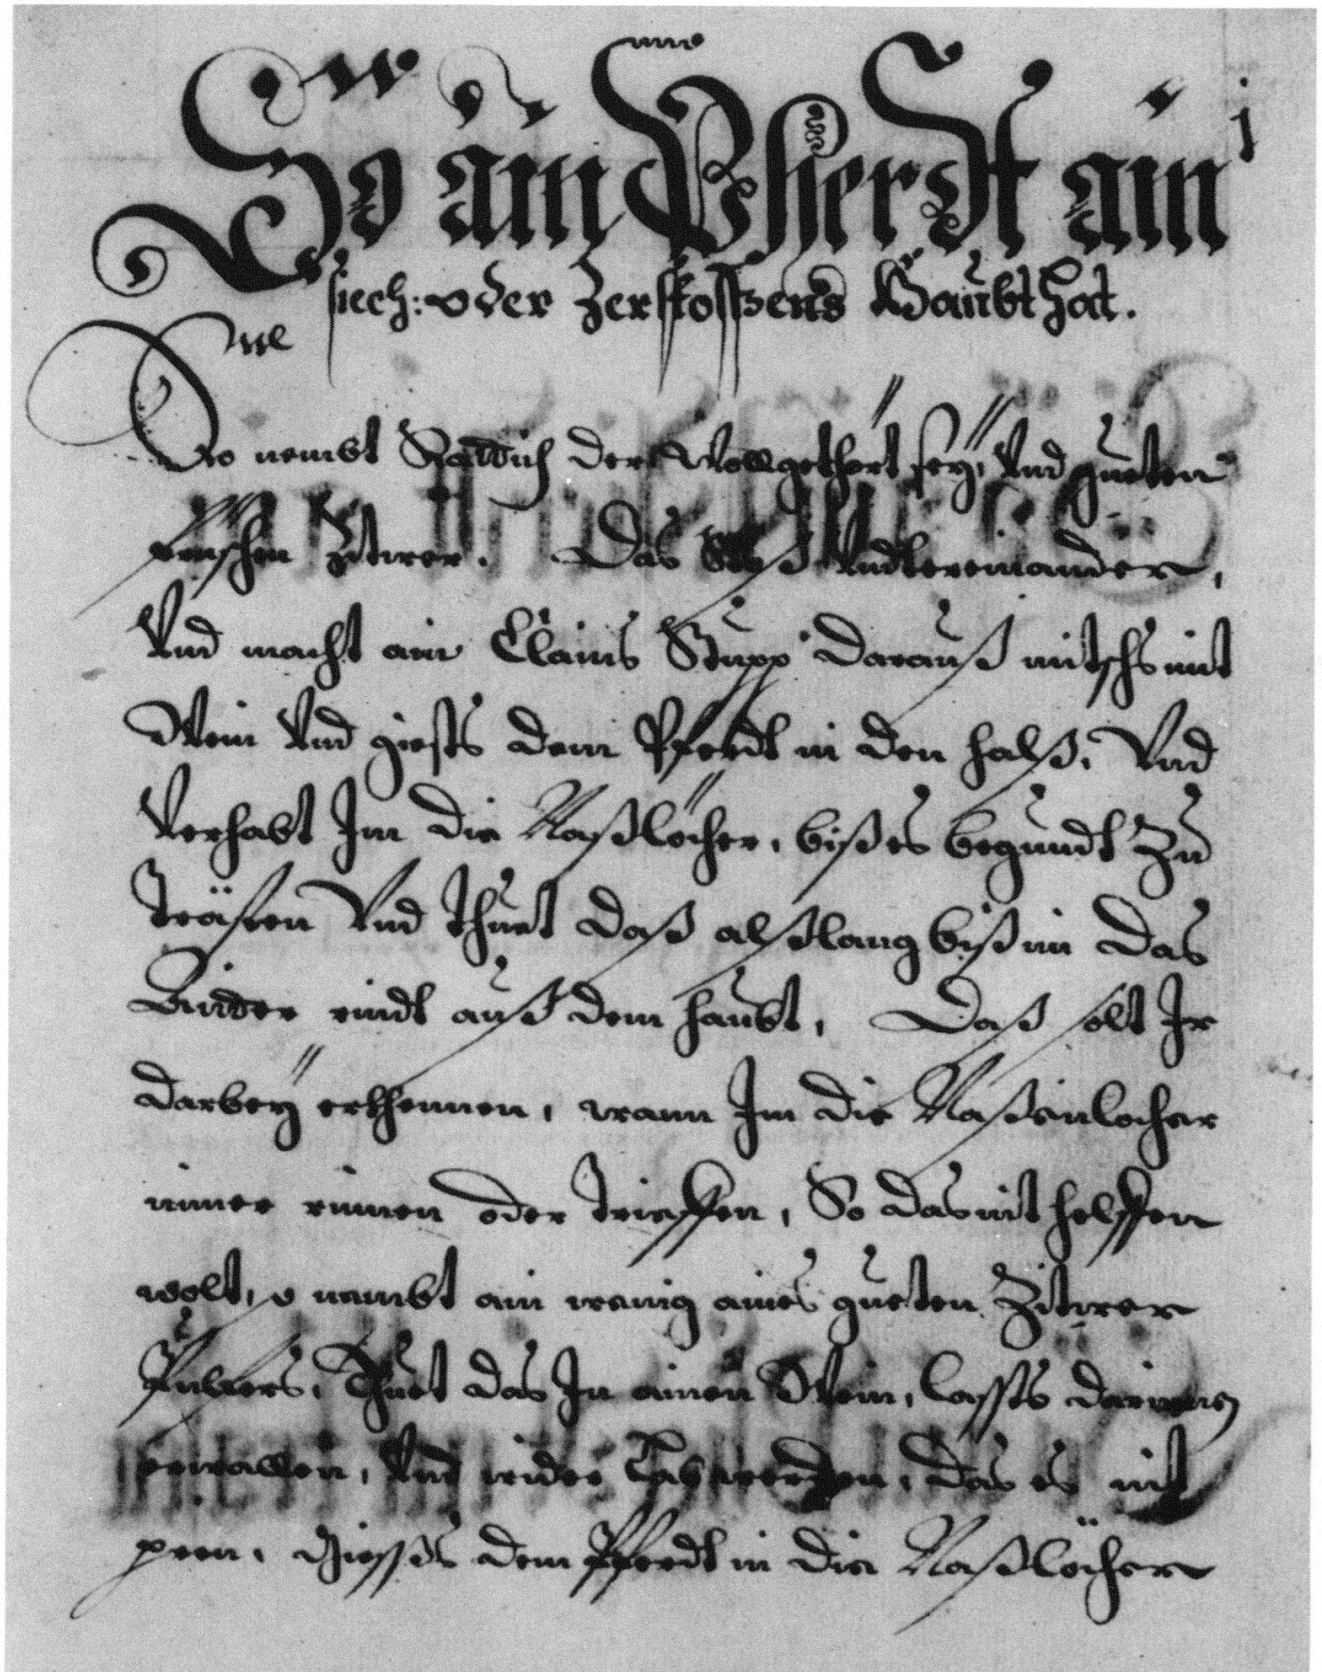 j
So ain Pherdt ain
siech: oder Zerstossens Haubt hat.
So nembt Rattich der wollgethört sey, Vnd gueten
frischen Zitwer. Das Stost Vndtereinander,
Vnd macht ain Clains Stupp darauß mitschs mit
Wein Vnd giests dem Pferdt in den halß, Vnd
Verhabt Im die Naßlöcher, biß es begundt Zu
Trässen Vnd Thuet daß alßlang biß im das
Aitter rindt auß dem haubt, Daß solt Ir
darbey erkhennen, wann Im die Naßenlocher
nimer rinnen oder Trieffen, So das nit helffen
wolt, so nembt ain wenig aines gueten Zitwer
Puluers, Thuet das In ainen Wein, lassts darinnen
erwallen, Vnd wider Lab werden, das es nit
pren, Giesses dem Pferdt in die Naßlöcher